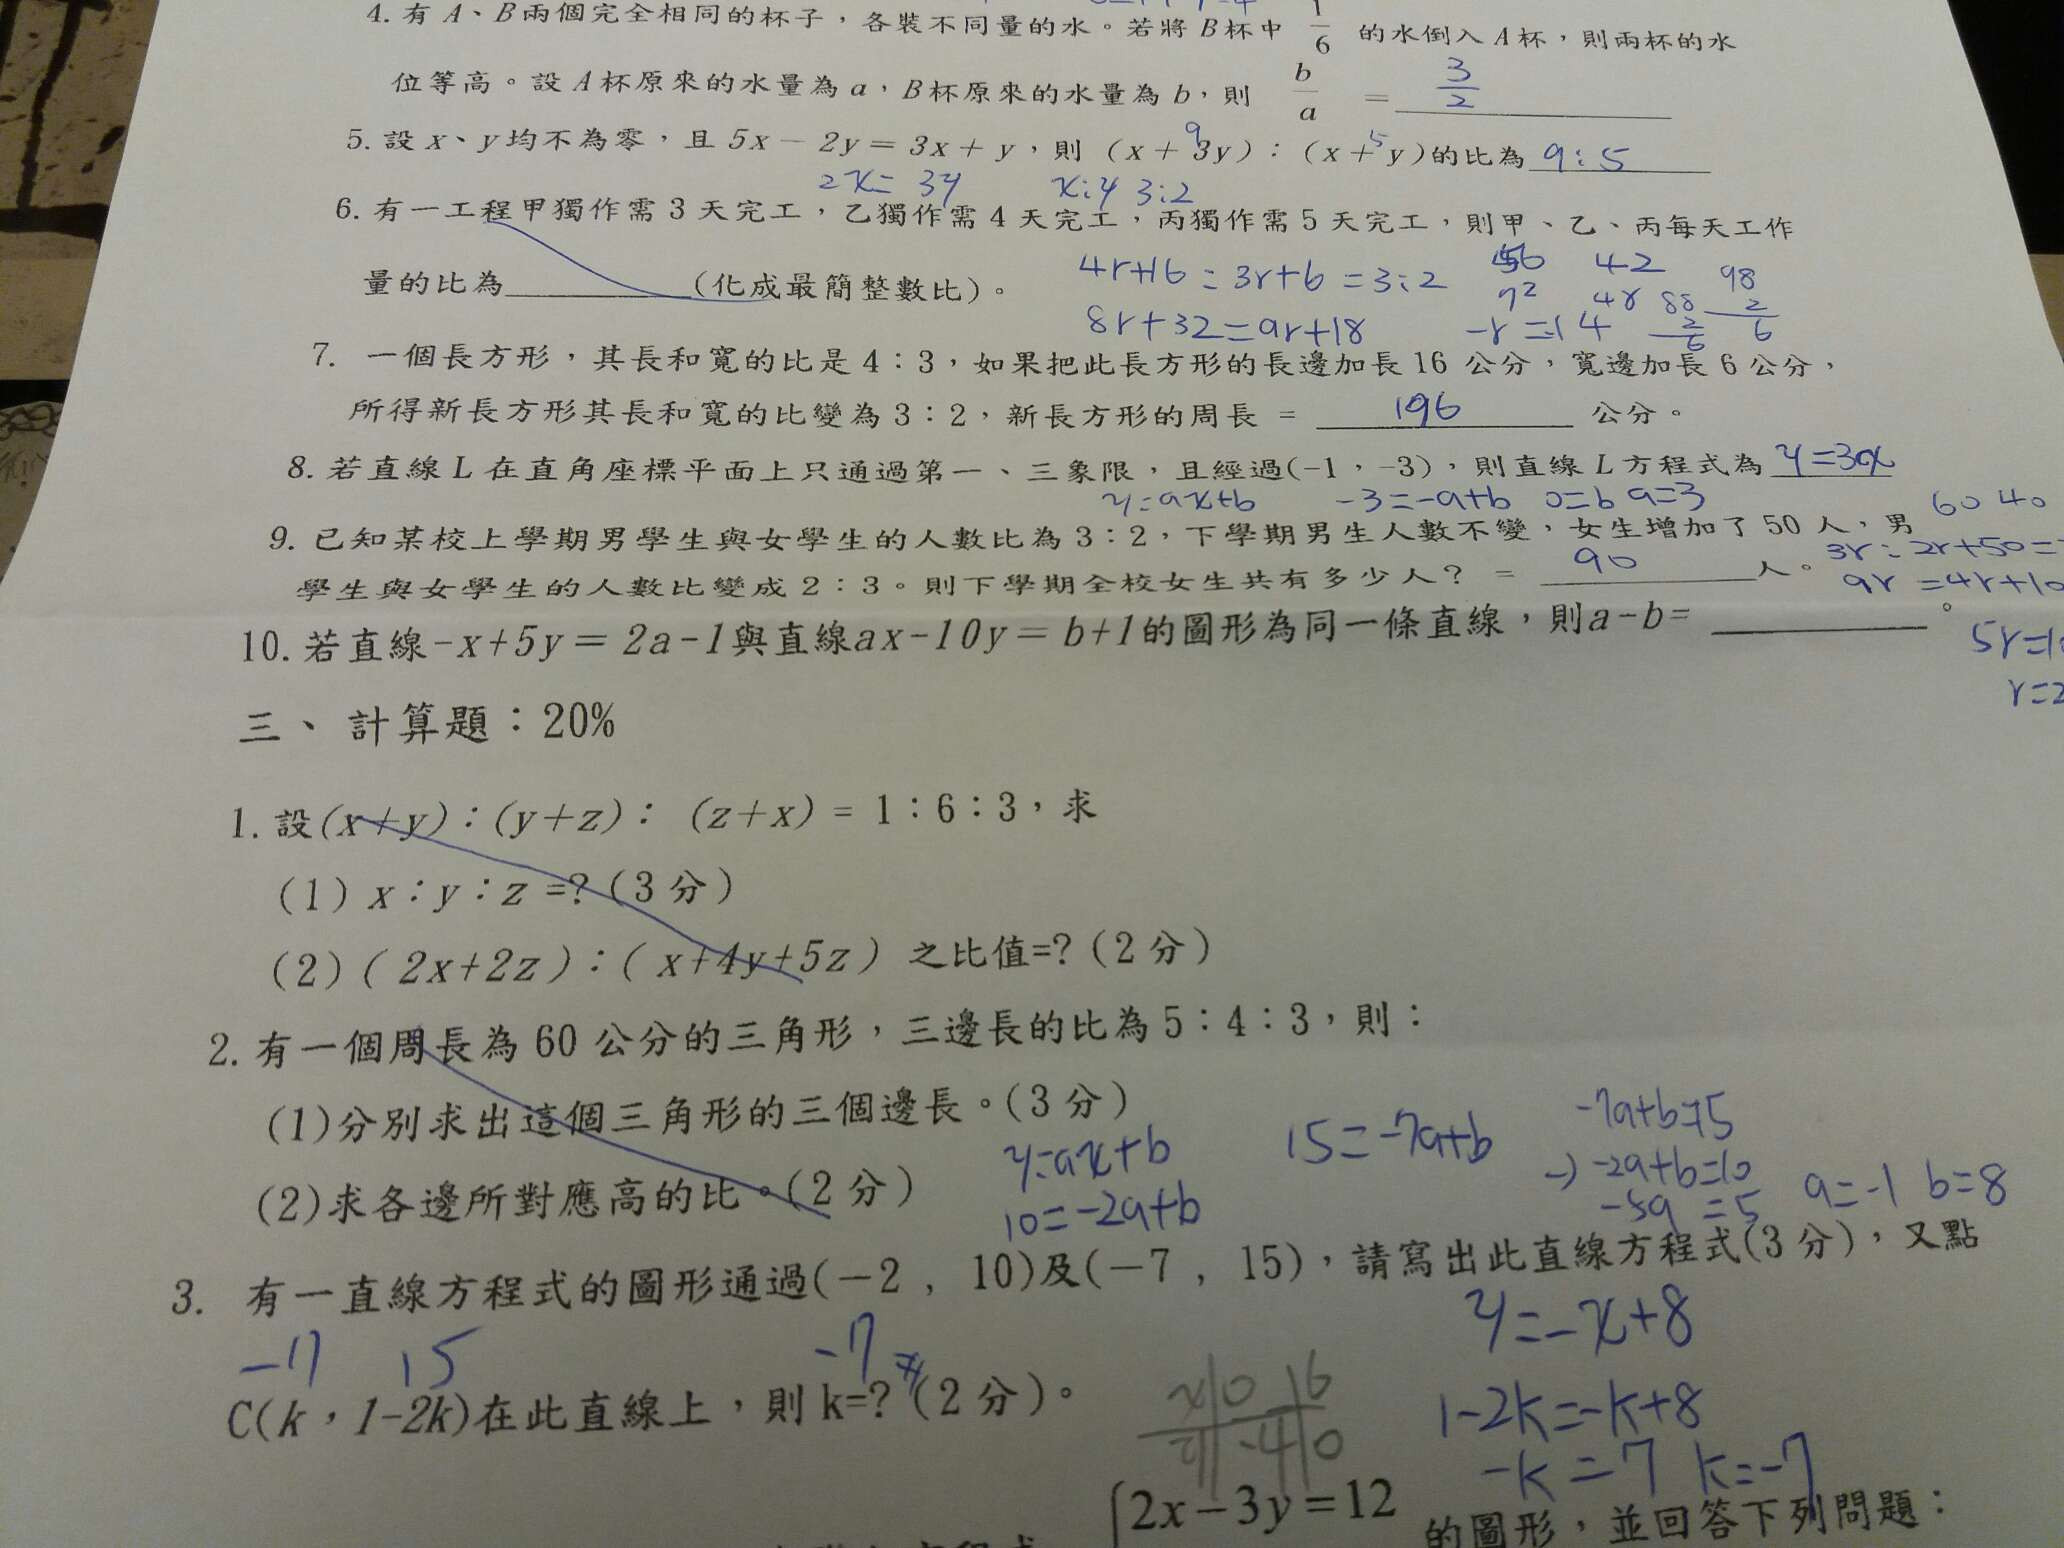 4. 有 A、B 兩個完全相同的杯子，各裝不同量的水。若將 B 杯中 1/6 的水倒入 A 杯，則兩杯的水
位等高。設 A 杯原來的水量為 a，B 杯原來的水量為 b，則 b/a = 3/2
5. 設 x、y 均不為零，且 5x－2y＝3x＋y，則 (x＋3y)：(x＋y)的比為 9:5
9 5
2x=3y x:y 3:2
6. 有一工程甲獨作需 3 天完工，乙獨作需 4 天完工，丙獨作需 5 天完工，則甲、乙、丙每天工作
量的比為 (化成最簡整數比)。
4r+16 : 3r+6 = 3:2 56 42
72 48 88 98
2 2
6 6
8r+32=9r+18 -r=-14
7. 一個長方形，其長和寬的比是 4：3，如果把此長方形的長邊加長 16 公分，寬邊加長 6 公分，
所得新長方形其長和寬的比變為 3：2，新長方形的周長 = 196 公分。
8. 若直線 L 在直角座標平面上只通過第一、三象限，且經過(-1，-3)，則直線 L 方程式為 y=3x
y=ax+b -3=-a+b 0=b a=3
60 40
9. 已知某校上學期男學生與女學生的人數比為 3：2，下學期男生人數不變，女生增加了 50 人，男
3r:2r+50=
學生與女學生的人數比變成 2：3。則下學期全校女生共有多少人？ = 90 人。
9r=4r+10
5r=10
r=2
10. 若直線-x+5y＝2a-1與直線ax-10y＝b+1的圖形為同一條直線，則a-b= 。
三、 計算題：20%
1. 設(x＋y)：(y＋z)：(z＋x) = 1：6：3，求
(1) x：y：z =? (3 分)
(2) (2x+2z)：(x+4y+5z) 之比值=? (2 分)
2. 有一個周長為 60 公分的三角形，三邊長的比為 5：4：3，則：
(1)分別求出這個三角形的三個邊長。(3 分)
(2)求各邊所對應高的比。(2 分)
y=ax+b 15=-7a+b -7a+b=15
10=-2a+b -) -2a+b=10
-5a =5 a=-1 b=8
3. 有一直線方程式的圖形通過(－2 , 10)及(－7 , 15)，請寫出此直線方程式(3 分)，又點
y=-x+8
-7 15 -7
C(k，1-2k)在此直線上，則 k=? (2 分)。
1-2k=-k+8
-k=7 k=-7
x 0 6
y -4 0
2x－3y＝12 的圖形，並回答下列問題：